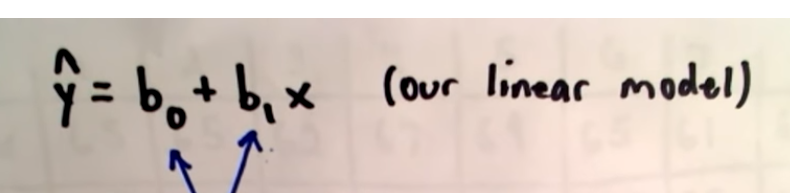 ŷ = b₀ + b₁x (our linear model)